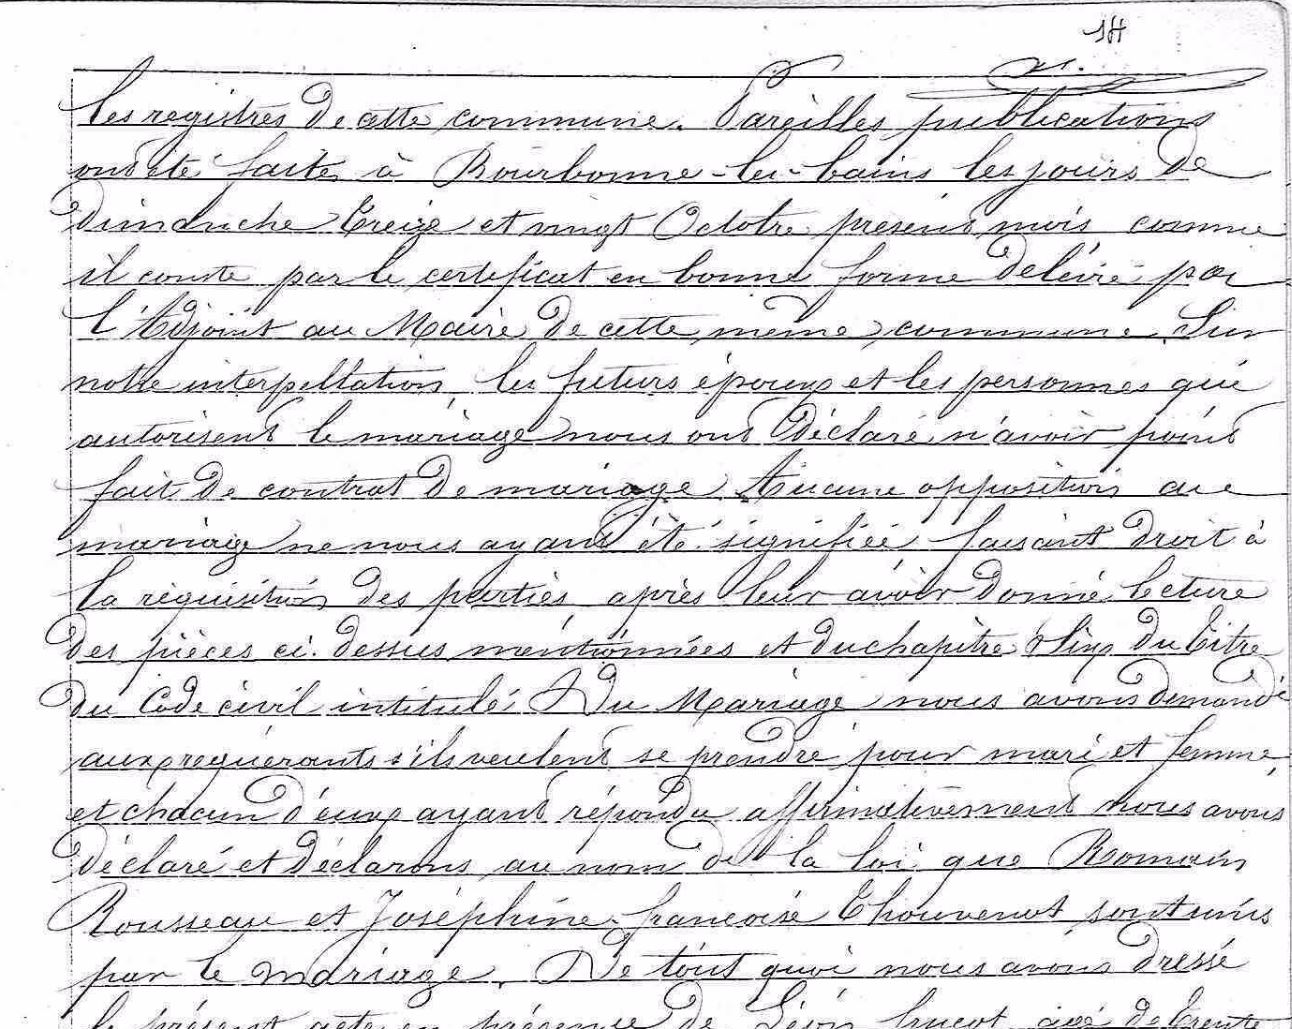 14
les registres de cette commune. Pareilles publications
ont été faites à Bourbonne-les-bains les jours de
dimanche treize et vingt Octobre présent mois comme
il conste par le certificat en bonne forme délivré par
l'Adjoint au Maire de cette même commune. Sur
notre interpellation, les futurs époux et les personnes qui
autorisent le mariage nous ont déclaré n'avoir point
fait de contrat de mariage. Aucune opposition au
mariage ne nous ayant été signifiée faisant droit à
la réquisition des parties après leur avoir donné lecture
des pièces ci-dessus mentionnées et du chapitre Six du titre
du Code civil intitulé Du Mariage nous avons demandé
aux requérants s'ils veulent se prendre pour mari et femme
et chacun d'eux ayant répondu affirmativement nous avons
déclaré et déclarons au nom de la loi que Romain
Rousseau et Joséphine françoise Thouvenot sont unis
par le mariage. De tout quoi nous avons dressé
le présent acte en présence de Léon hucot âgé de trente